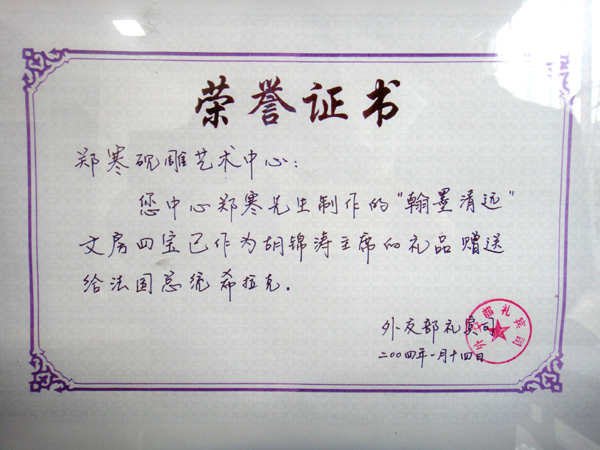 荣誉证书
郑寒砚雕艺术中心：
您中心郑寒先生制作的“翰墨清远”
文房四宝已作为胡锦涛主席的礼品赠送
给法国总统希拉克．
外交部礼宾司
二〇〇四年一月十四日
外交部礼宾司